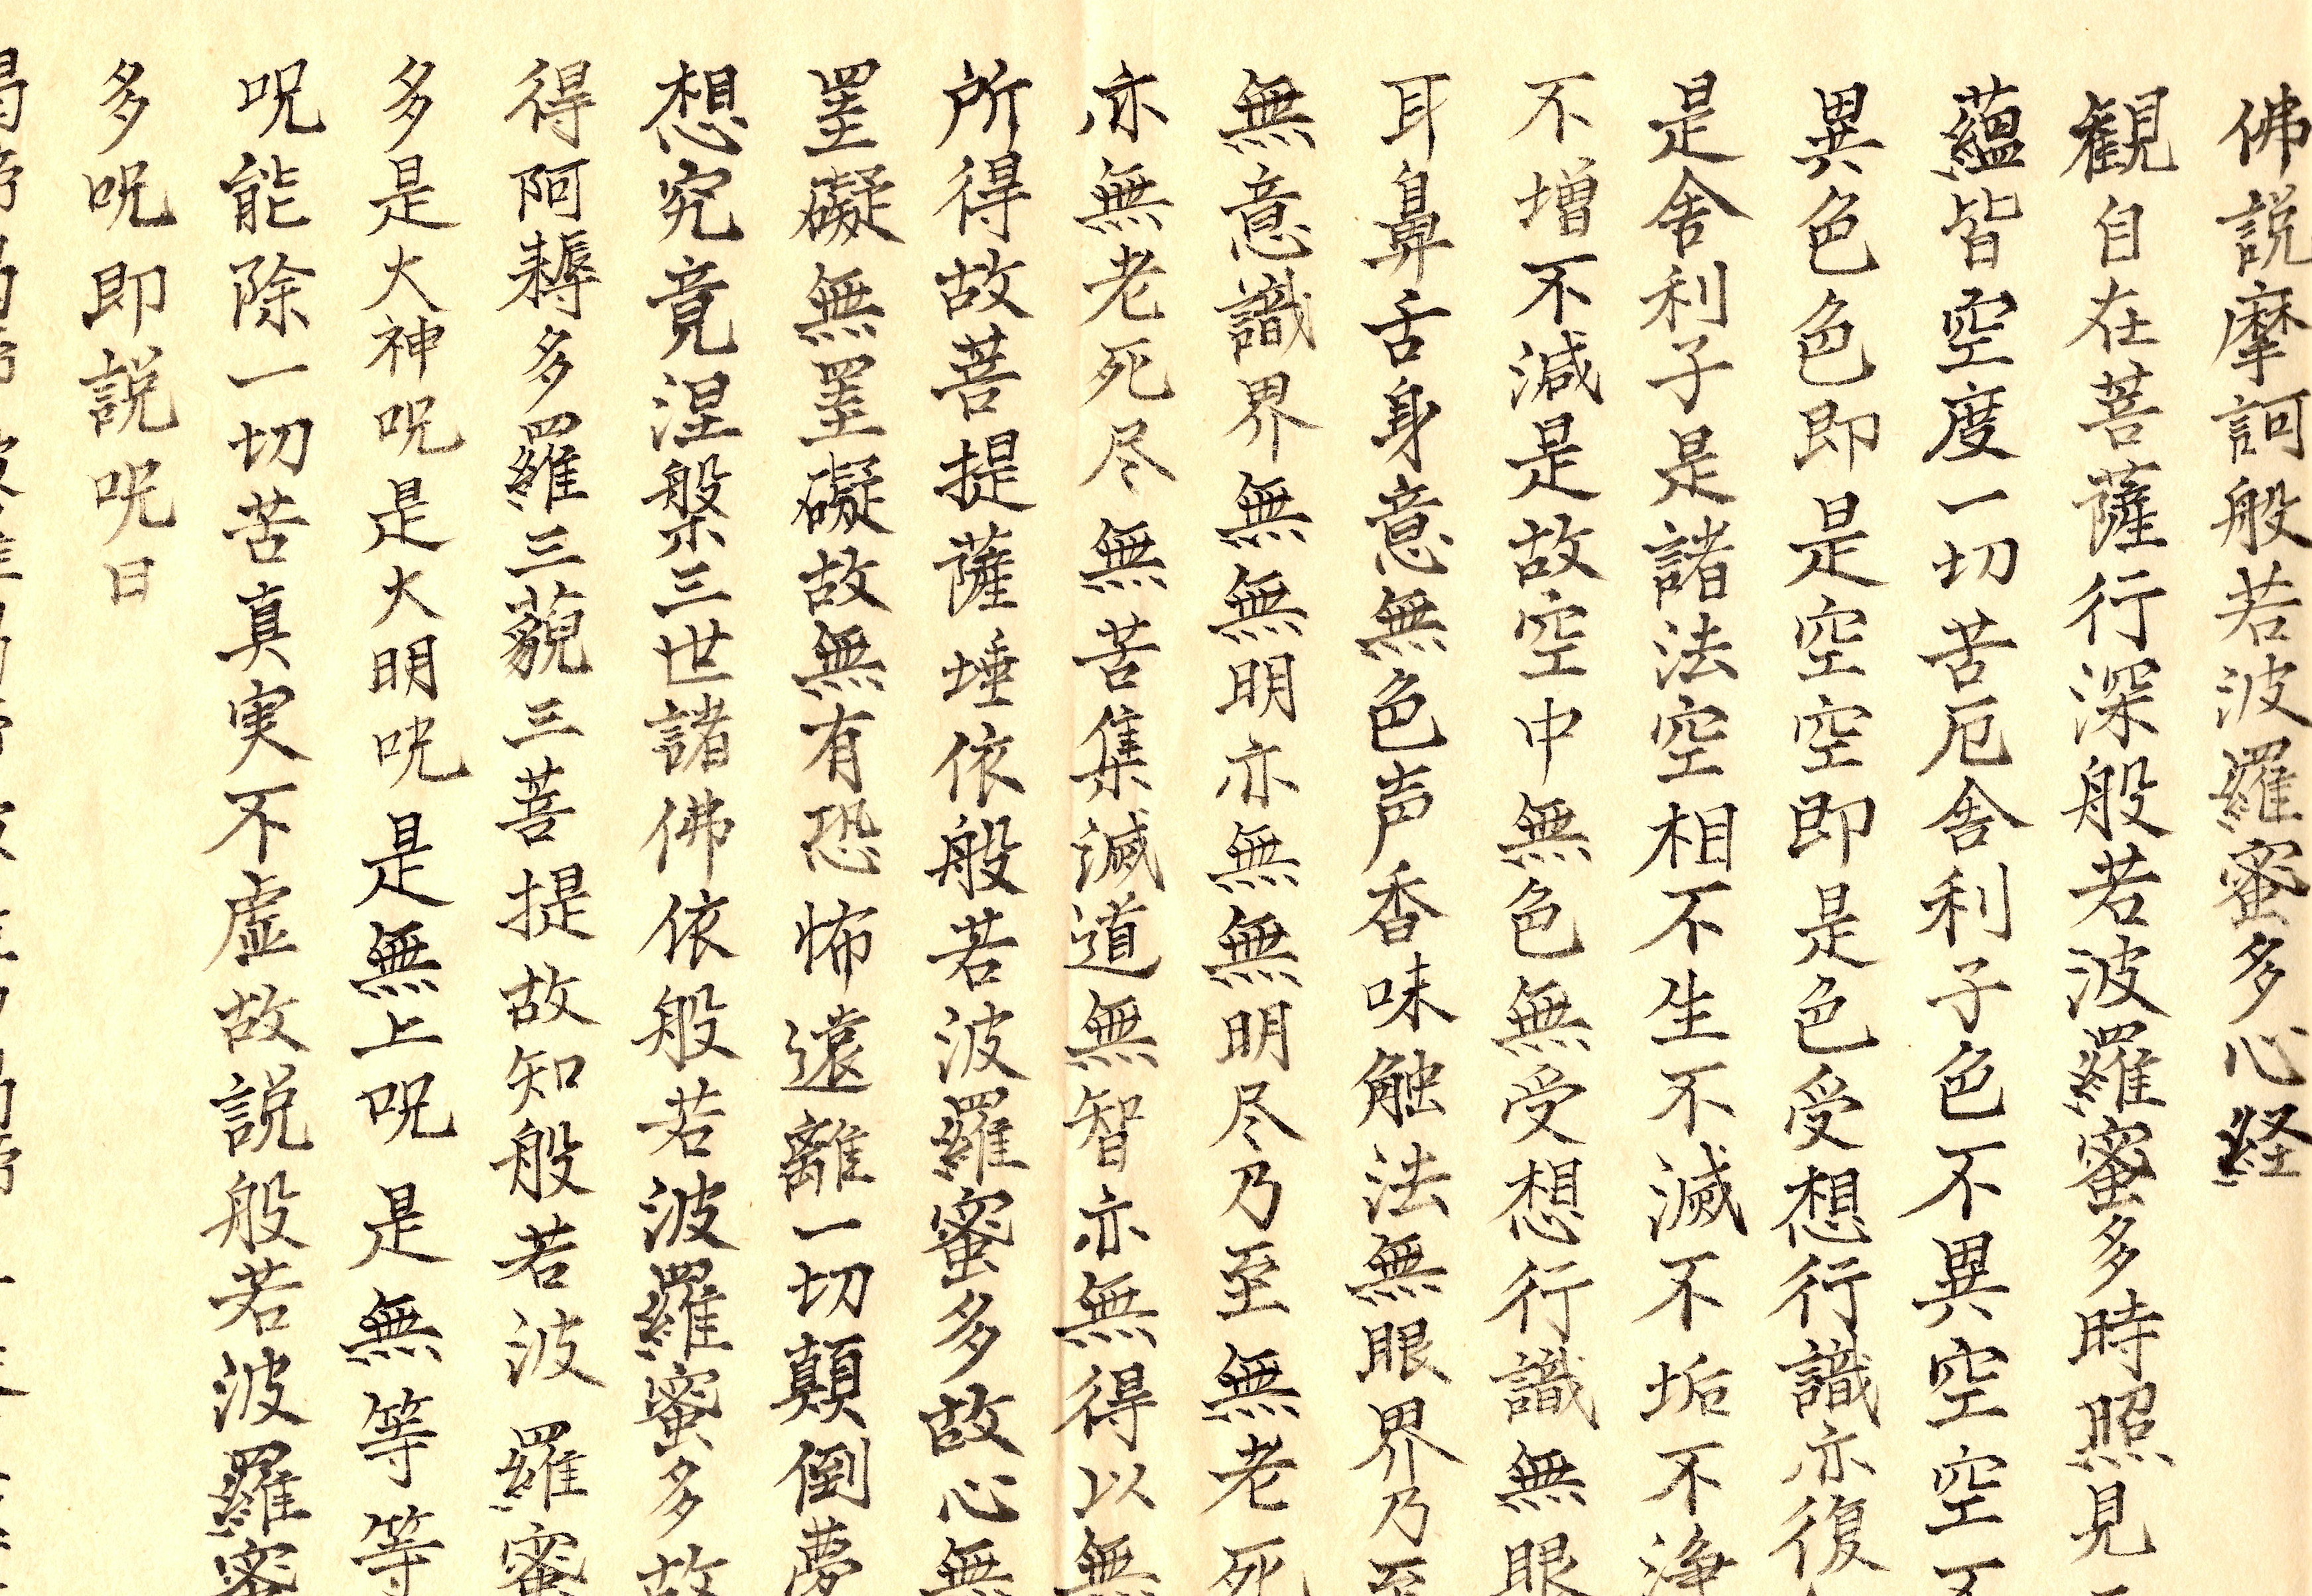 佛説摩訶般若波羅蜜多心経
観自在菩薩行深般若波羅蜜多時照見
蘊皆空度一切苦厄舎利子色不異空空不
異色色即是空空即是色受想行識亦復
是舎利子是諸法空相不生不滅不垢不浄
不増不減是故空中無色無受想行識無眼
耳鼻舌身意無色声香味触法無眼界乃至
無意識界無無明亦無無明尽乃至無老死
亦無老死尽無苦集滅道無智亦無得以無
所得故菩提薩埵依般若波羅蜜多故心無
罣礙無罣礙故無有恐怖遠離一切顛倒夢
想究竟涅槃三世諸佛依般若波羅蜜多故
得阿耨多羅三藐三菩提故知般若波羅蜜
多是大神呪是大明呪是無上呪是無等等
呪能除一切苦真実不虚故説般若波羅蜜
多呪即説呪曰